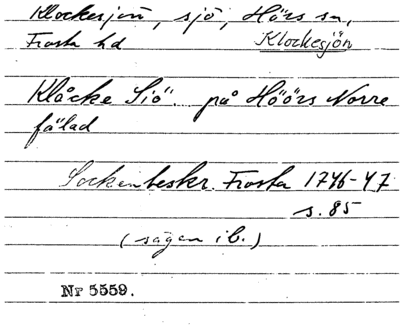 Klockesjön, sjö, Hörs sn,
Frosta hd Klockesjön
Klåcke Siö på Höörs Norre
fälad
Sockenbeskr. Frosta 1746-47
s. 85
(sägen ib.)
Nr 5559.